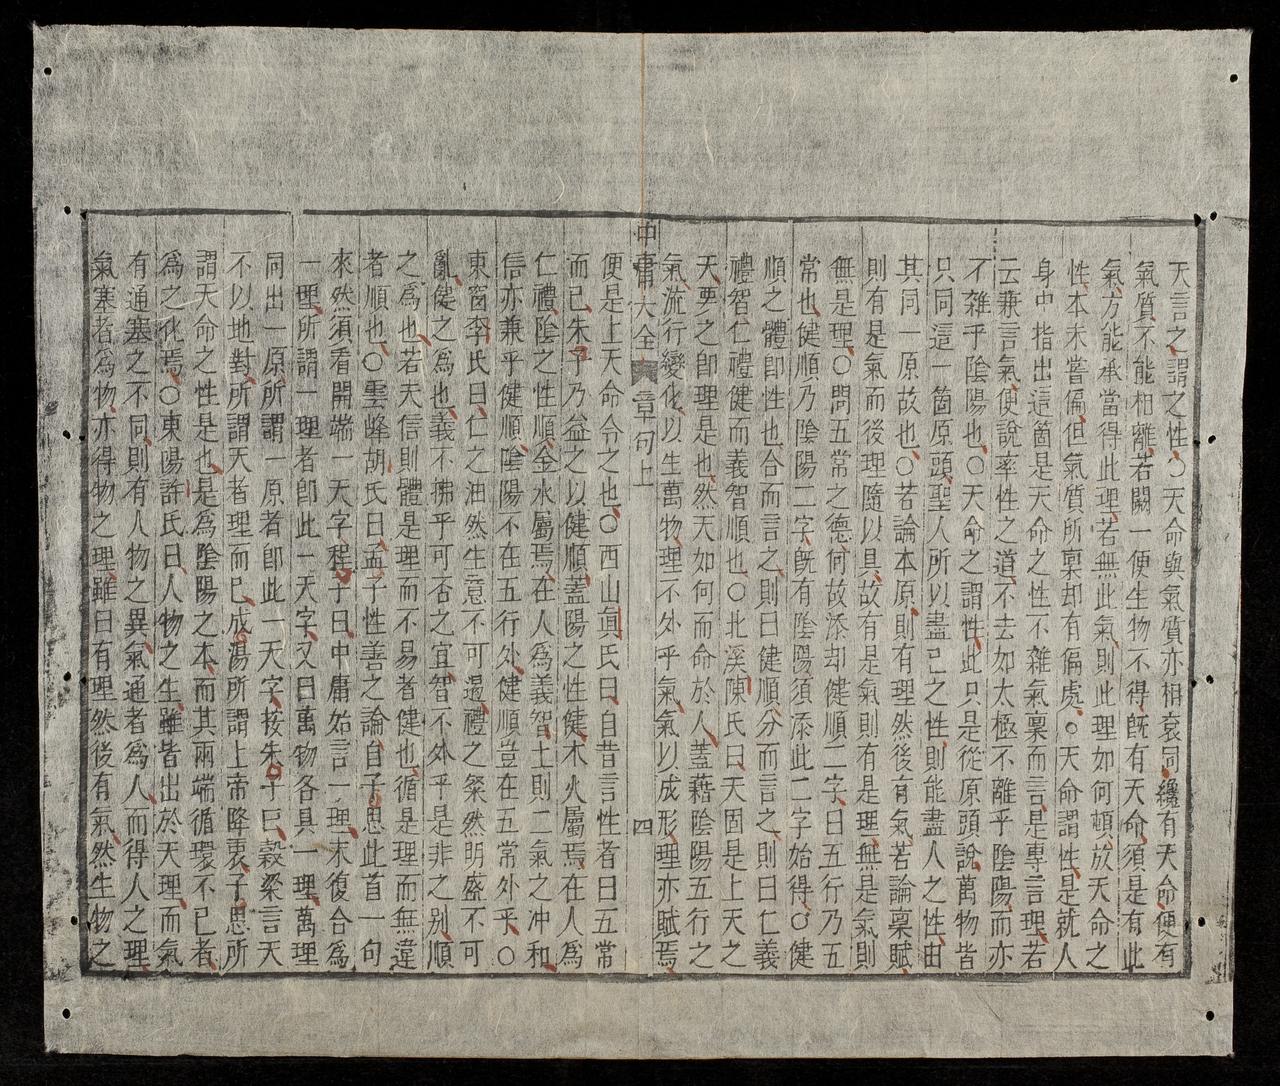 天言之謂之性○天命與氣質亦相袞同纔有天命便有
氣質不能相離若闕一便生物不得旣有天命須是有此
氣方能承當得此理若無此氣則此理如何頓放天命之
性本未嘗偏但氣質所稟却有偏處○天命謂性是就人
身中指出這箇是天命之性不雜氣稟而言是專言理若
云兼言氣便說率性之道不去如太極不離乎陰陽而亦
不雜乎陰陽也○天命之謂性此只是從原頭說萬物皆
只同這一箇原頭聖人所以盡己之性則能盡人之性由
其同一原故也○若論本原則有理然後有氣若論稟賦
則有是氣而後理隨以具故有是氣則有是理無是氣則
無是理○問五常之德何故添却健順二字曰五行乃五
常也健順乃陰陽二字旣有陰陽須添此二字始得○健
順之體卽性也合而言之則曰健順分而言之則曰仁義
禮智仁禮健而義智順也○北溪陳氏曰天固是上天之
天要之卽理是也然天如何而命於人蓋藉陰陽五行之
氣流行變化以生萬物理不外乎氣氣以成形理亦賦焉
中庸大全 章句上 四
便是上天命令之也○西山眞氏曰自昔言性者曰五常
而已朱子乃益之以健順蓋陽之性健木火屬焉在人爲
仁禮陰之性順金水屬焉在人爲義智土則二氣之冲和
信亦兼乎健順陰陽不在五行外健順豈在五常外乎○
東窗李氏曰仁之油然生意不可遏禮之粲然明盛不可
亂健之爲也義不拂乎可否之宜智不外乎是非之別順
之爲也若夫信則體是理而不易者健也循是理而無違
者順也○雲峰胡氏曰孟子性善之論自子思此首一句
來然須看開端一天字程子曰中庸始言一理末復合爲
一理所謂一理者卽此一天字又曰萬物各具一理萬理
同出一原所謂一原者卽此一天字按朱子曰穀梁言天
不以地對所謂天者理而已成湯所謂上帝降衷子思所
謂天命之性是也是爲陰陽之本而其兩端循環不已者
爲之化焉○東陽許氏曰人物之生雖皆出於天理而氣
有通塞之不同則有人物之異氣通者爲人而得人之理
氣塞者爲物亦得物之理雖曰有理然後有氣然生物之